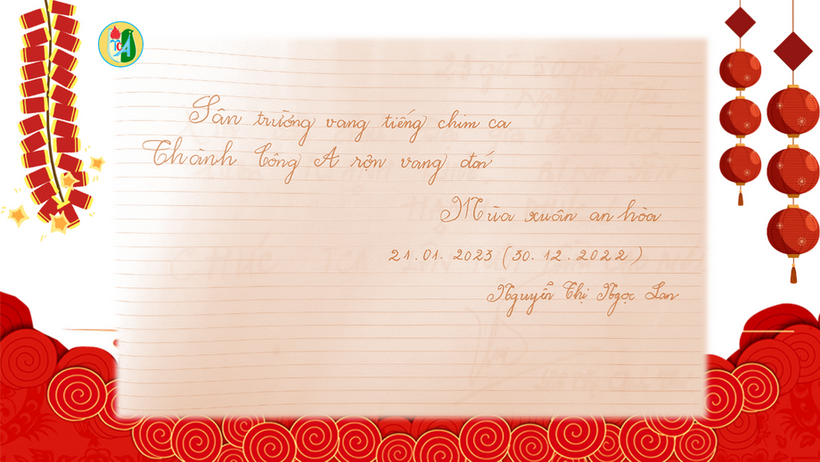 TCA
Sân trường vang tiếng chim ca
Thành Công A rộn vang đón
Mùa xuân an hòa
21.01.2023 (30.12.2022)
Nguyễn Thị Ngọc Lan